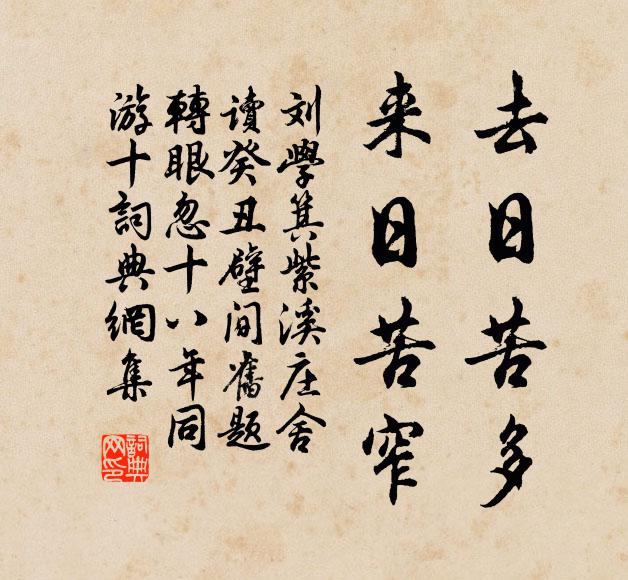 去日苦多
来日苦窄
刘學箕紫溪庄舍
讀癸丑壁间舊题
轉眼忽十八年同
游十詞典網集
詞典网印